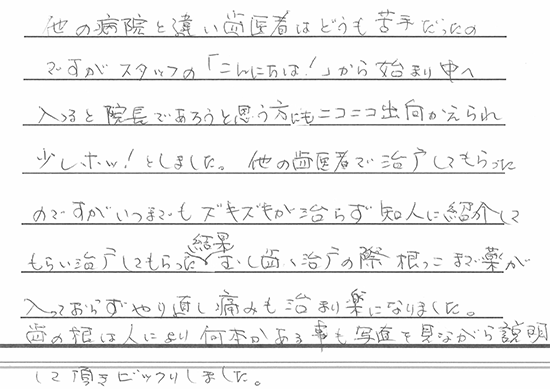 他の病院と違い歯医者はどうも苦手だったの
ですがスタッフの「こんにちは！」から始まり中へ
入ると院長であろうと思う方にもニコニコ出向かえられ
少しホッ！としました。他の歯医者で治疗してもらった
のですがいつまでもズキズキが治らず知人に紹介して
もらい治疗してもらった結果むし歯治疗の際根っこまで薬が
入っておらずやり直し痛みも治まり楽になりました。
歯の根は人により何本かある事も写真を見ながら説明
して頂きビックリしました。